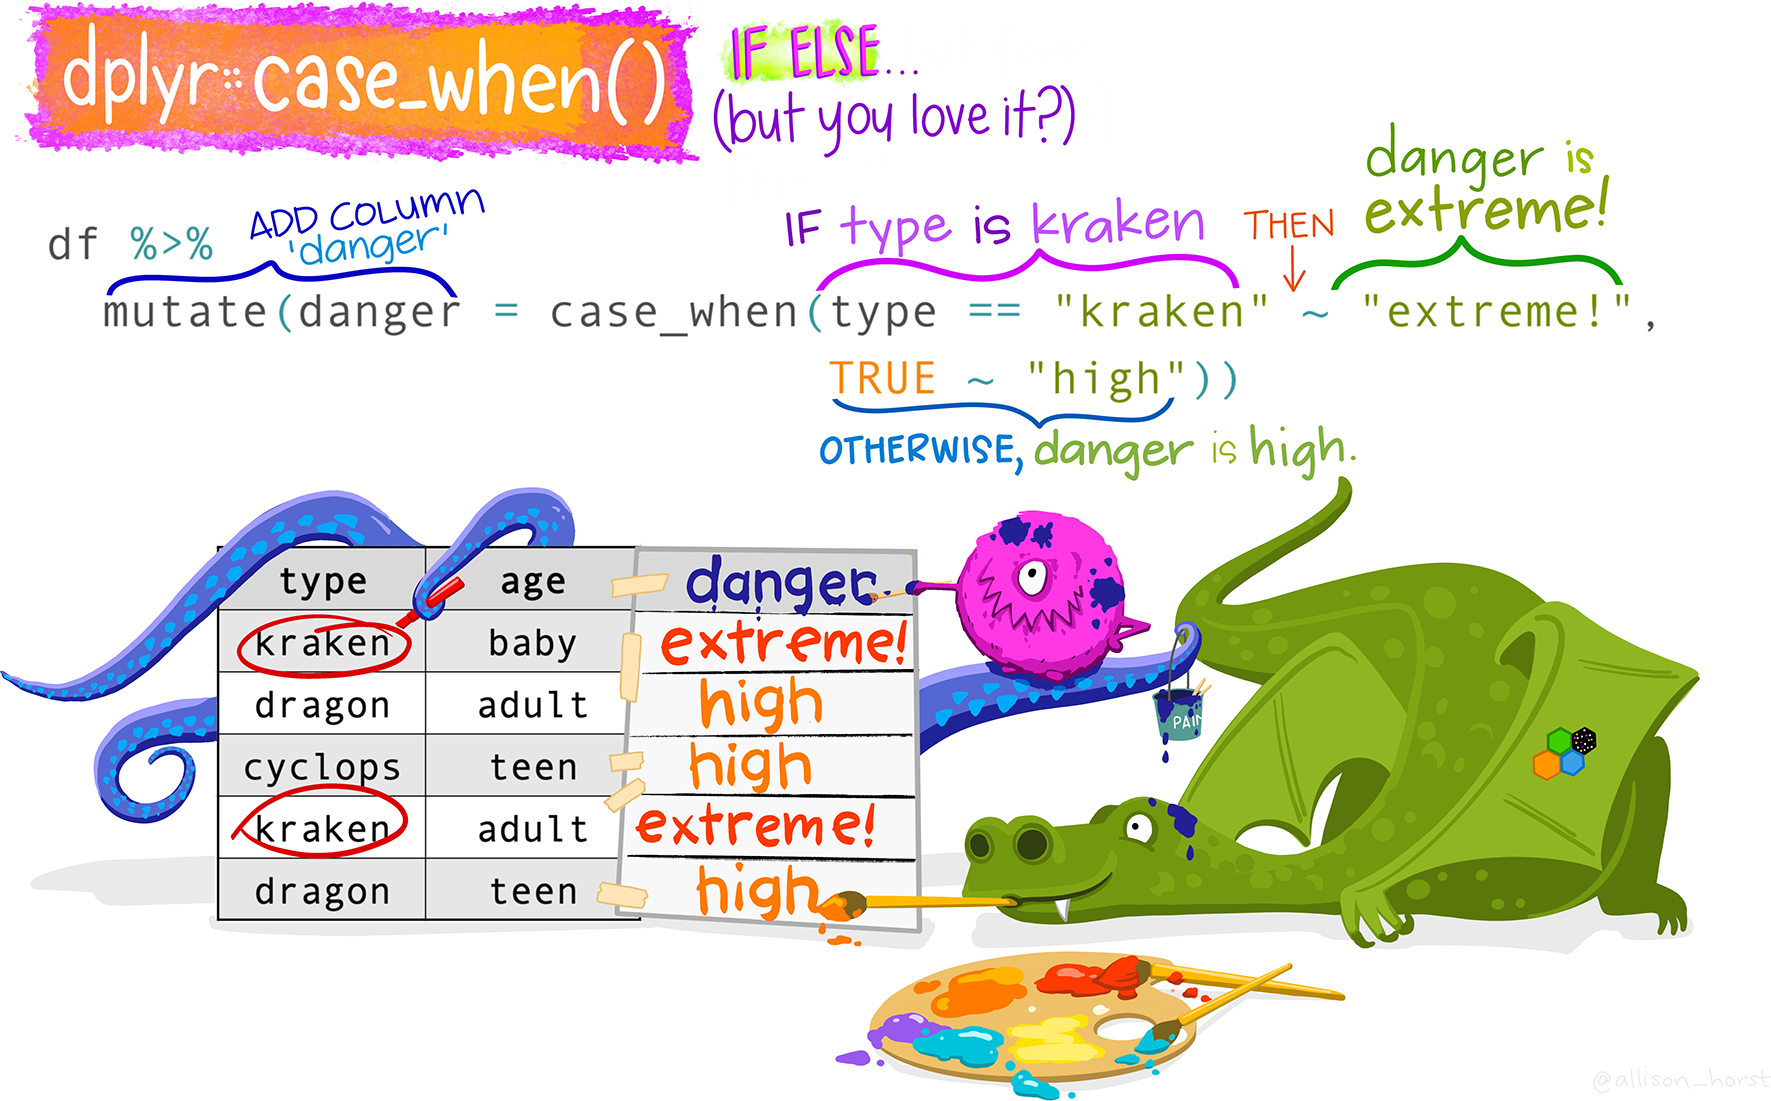 dplyr::case_when()
IF ELSE...
(but you love it?)
danger is
extreme!
ADD COLUMN
'danger'
IF type is kraken
THEN
df %>%
mutate(danger = case_when(type == "kraken" ~ "extreme!",
TRUE ~ "high"))
OTHERWISE, danger is high.
type age danger
kraken baby extreme!
dragon adult high
cyclops teen high
kraken adult extreme!
dragon teen high
PAIN
@allison_horst